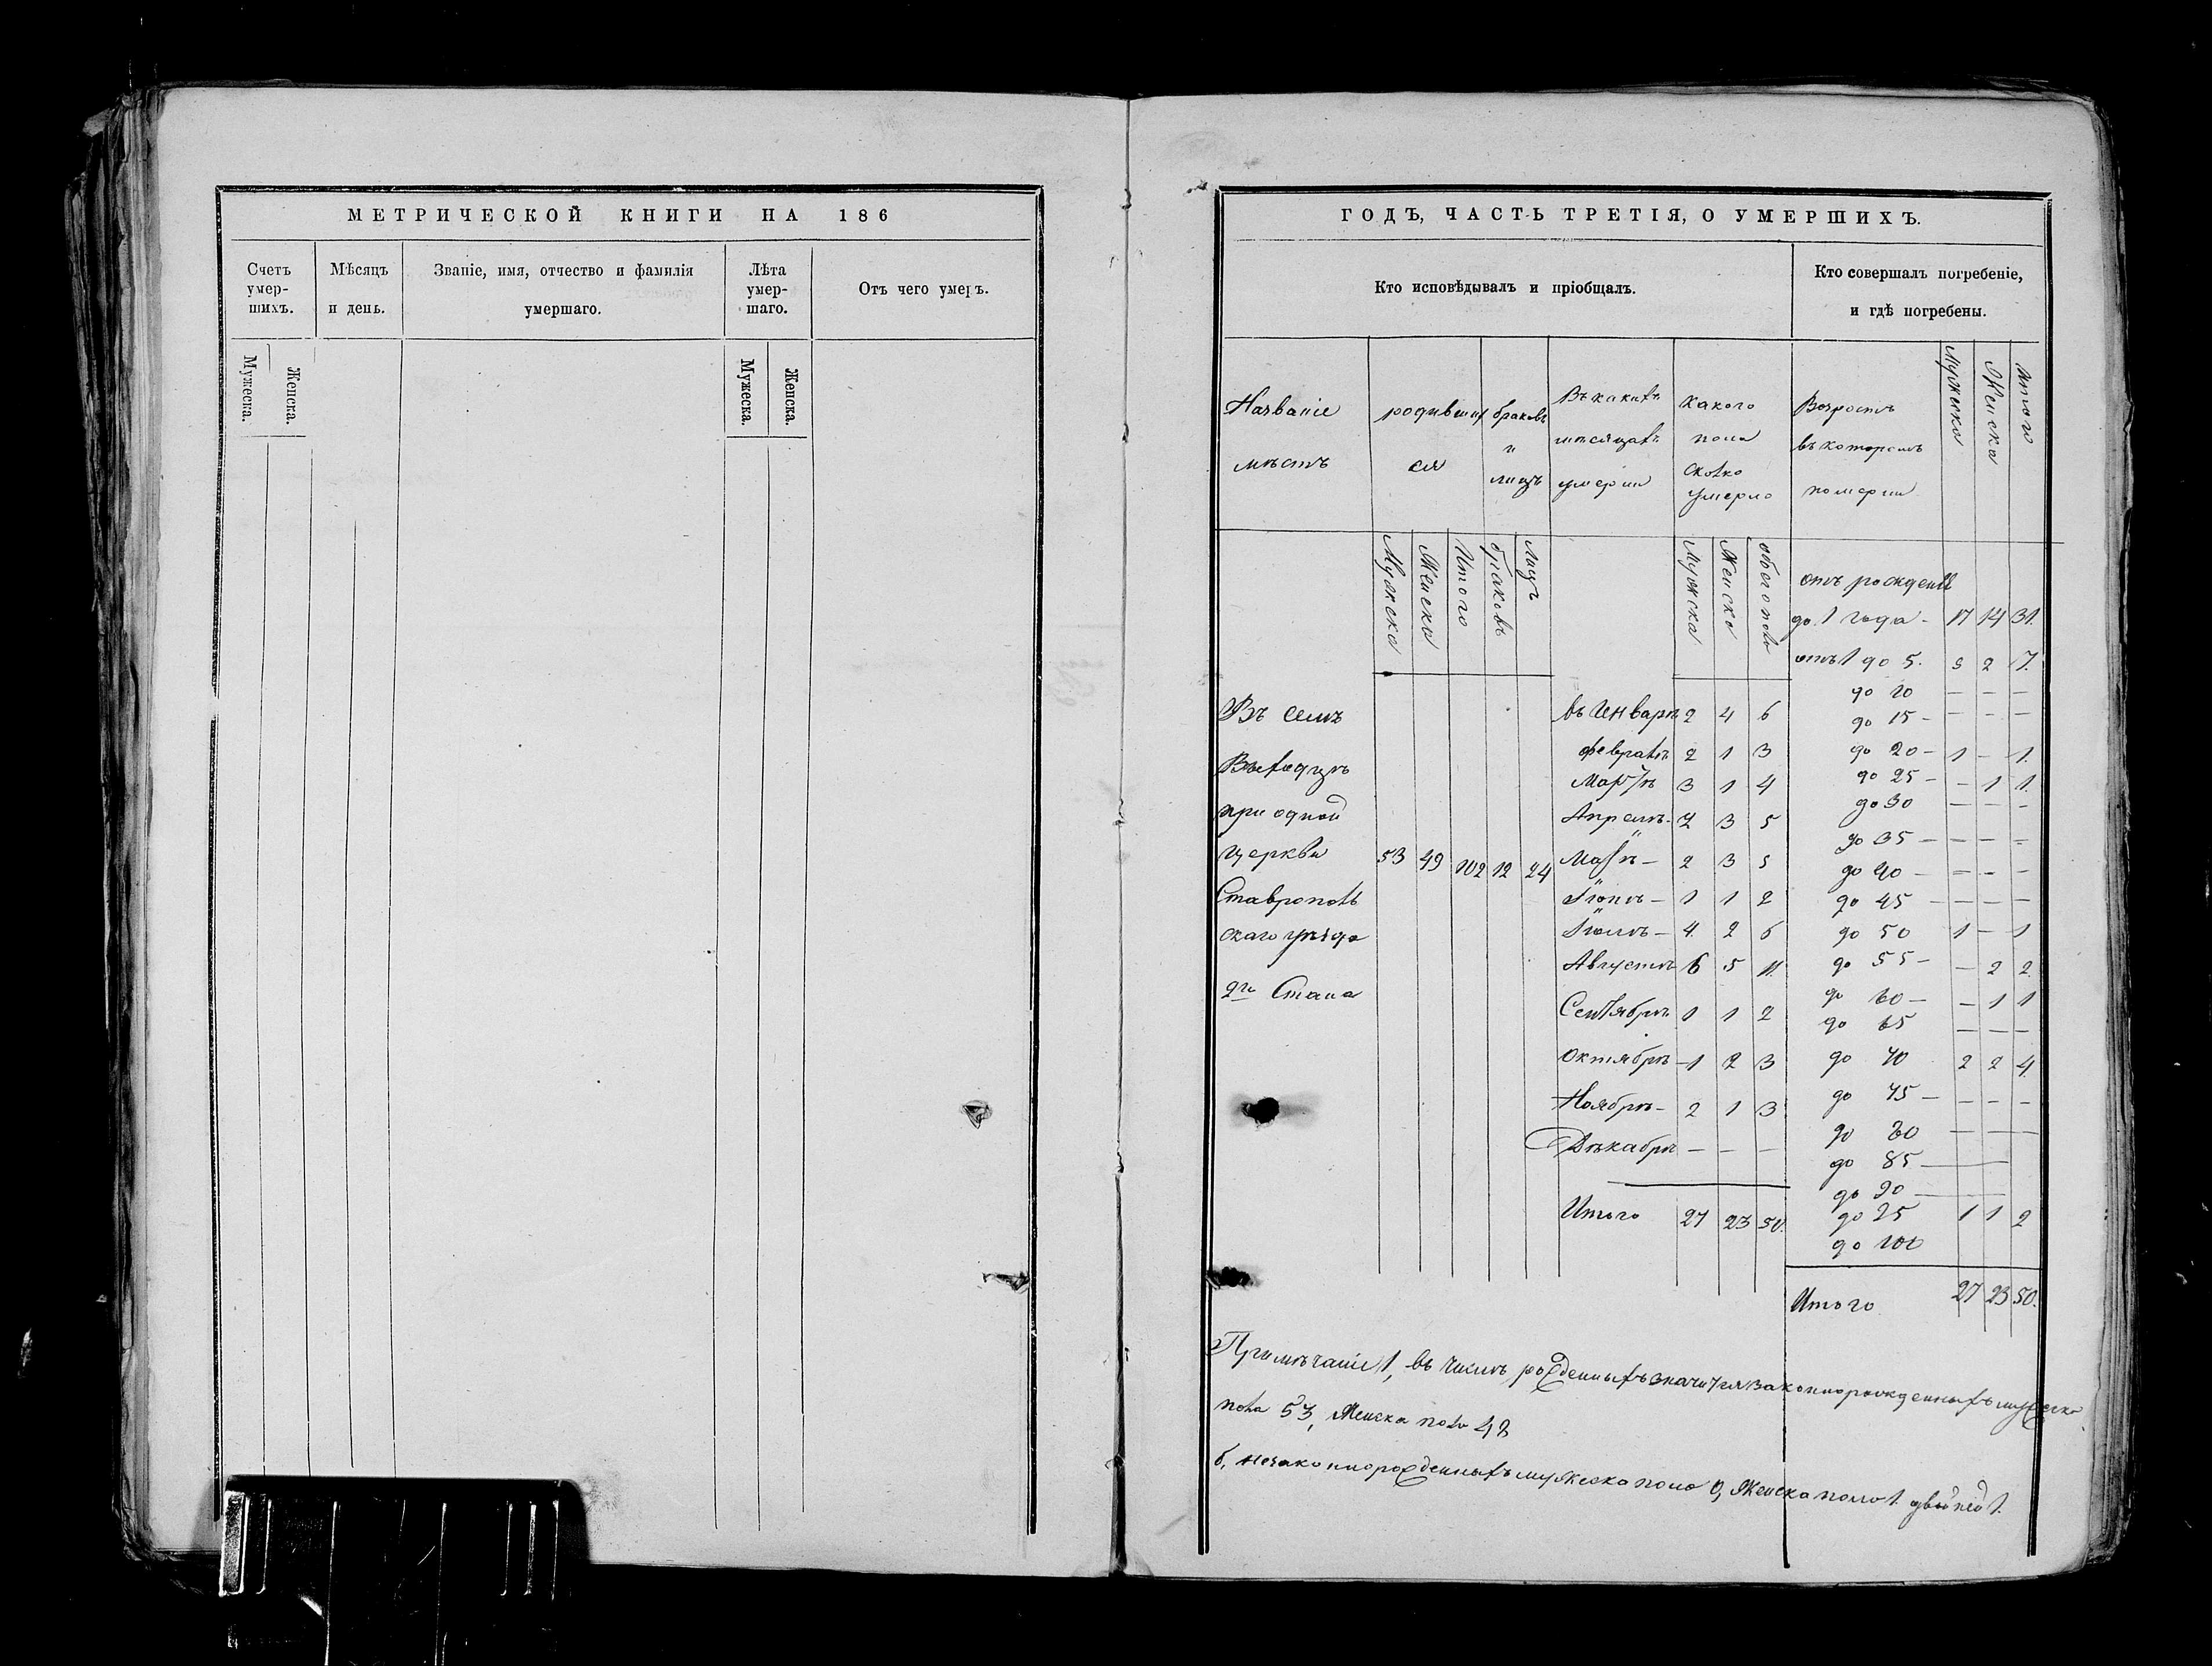 МЕТРИЧЕСКОЙ КНИГИ НА 186
Счетъ умер-шихъ.
Мѣсяцъ и день.
Званіе, имя, отчество и фамилія умершаго.
Лѣта умер-шаго.
Отъ чего умеръ.
Мужеска.
Женска.
Мужеска.
Женска.
ГОДЪ, ЧАСТЬ ТРЕТІЯ, О УМЕРШИХЪ.
Кто исповѣдывалъ и пріобщалъ.
Кто совершалъ погребеніе,
и гдѣ погребены.
Названіе мѣстъ
родивших ся
браковъ и лицъ
Въ какихъ мѣсяцахъ умерли
какого пола сколко умерло
Возрастъ въ которомъ померли
Мужеска
Женска
Итого
Мужеска
Женска
Итого
браковъ
лицъ
Мужска
Женска
обего пола
Въ селѣ
при одной
церкви 53 49 102 12 24
Ставрополь
скаго уѣзда
2го Стана
въ Январѣ 2 4 6
Февралѣ 2 1 3
Мартѣ 3 1 4
Апрелѣ - 2 3 5
Маѣ - 2 3 5
Іюнѣ - 1 1 2
Іюлѣ - 4 2 6
Августѣ 6 5 11
Сентябрѣ 1 1 2
Октябрѣ - 1 2 3
Ноябрѣ - 2 1 3
Декабрѣ — — —
Итого 27 23 50.
отъ рожденія
до 1 года - 17 14 31.
отъ 1 до 5. 5 2 7.
до 10 — — —
до 15 - — — —
до 20 - 1 - 1.
до 25 - - 1 1.
до 30 — — —
до 35 - — — —
до 40 - — — —
до 45 - — — —
до 50 1 - 1
до 55 - — 2 2
до 60 - — 1 1
до 65 — — —
до 70 2 2 4
до 75 - — — —
до 80 — — —
до 85 —
до 90 —
до 95 1 1 2
до 100
Итого 27 23 50.
Примѣчаніе 1, въ числѣ рожденныхъ значится законнорожденныхъ мужеска
пола 53, Женска пола 48
б, незаконнорожденныхъ мужеска пола 0, Женска пола 1. двойней 1.